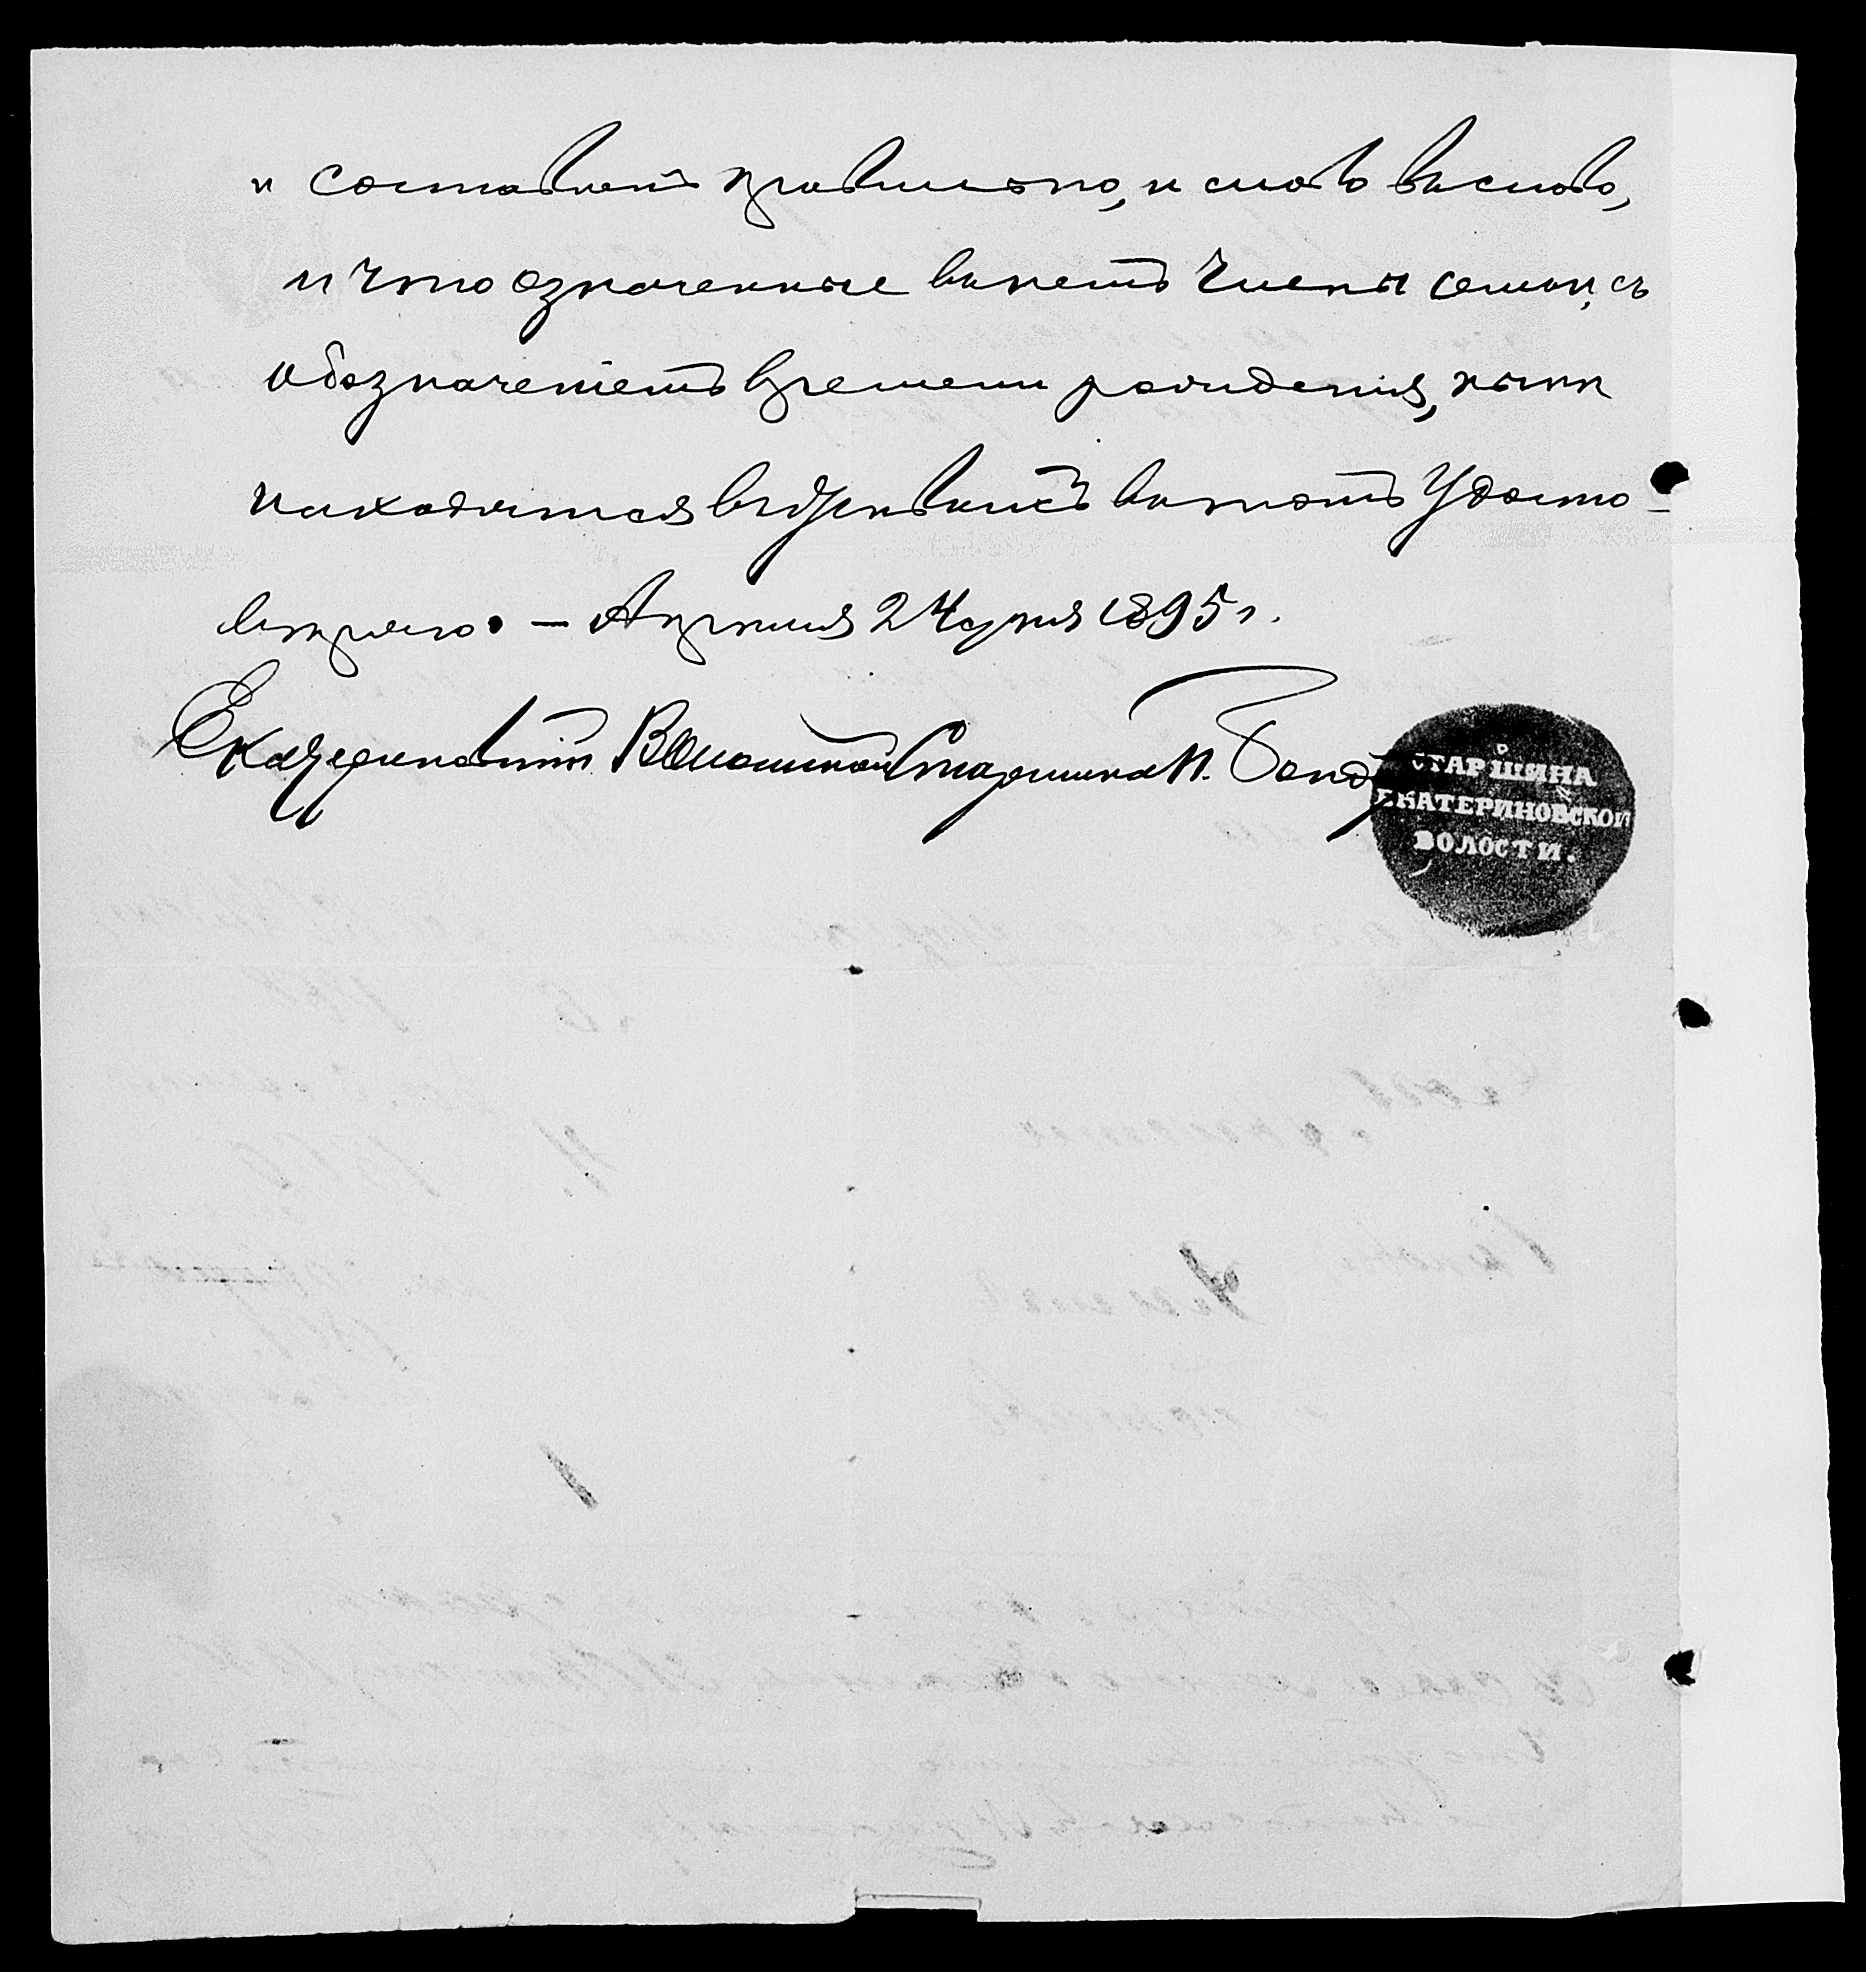 и составленъ правильно, и слово въ слово,
и что означенные въ немъ члены семьи, съ
обозначеніемъ времени рожденія, нынѣ
находятся въ живыхъ въ томъ удосто-
вѣряю. — Апрѣля 24 дня 1895 г.
Екатериновскій Волостной Старшина П.
СТАРШИНА
ЕКАТЕРИНОВСКОЙ
ВОЛОСТИ.